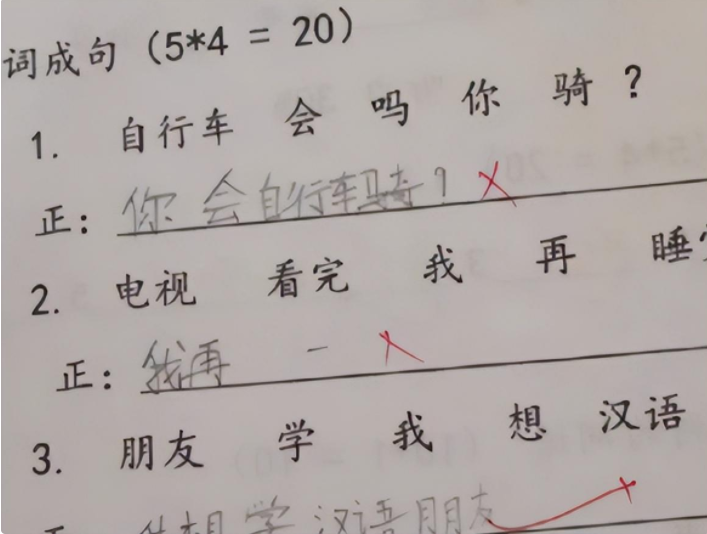 词成句（5*4 = 20）
1. 自行车 会 吗 你 骑 ？
正：你会自行车骑？
2. 电视 看完 我 再 睡
正：我再 一
3. 朋友 学 我 想 汉语
想学汉语朋友